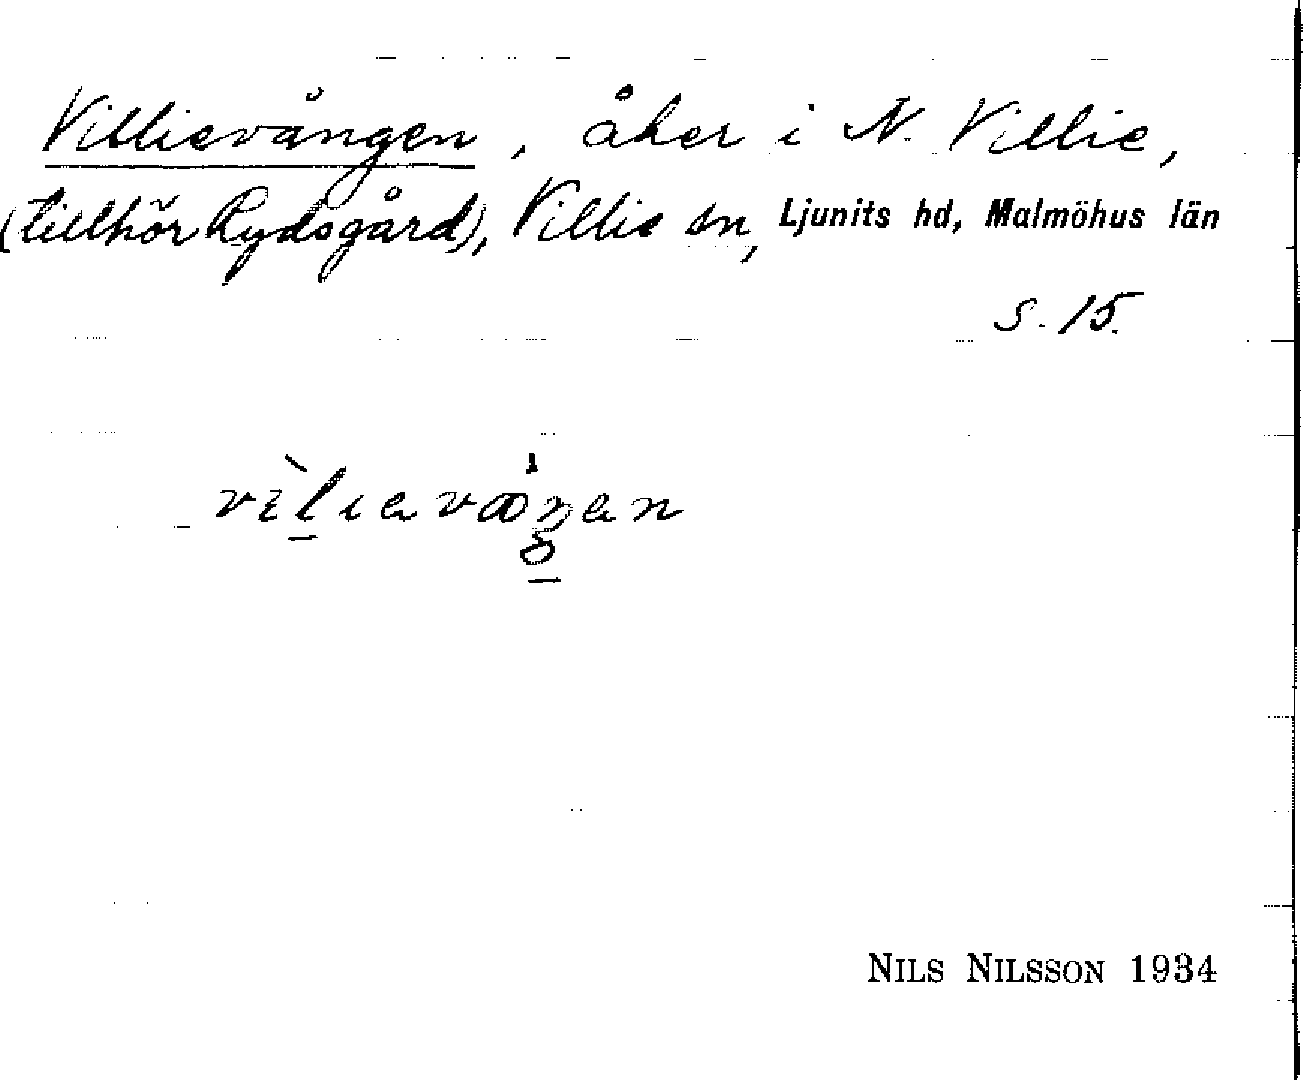 Villievången, åker i N. Villie,
(tillhör Rydsgård), Villie sn, Ljunits hd, Malmöhus län
s. 15.
NILS NILSSON 1934